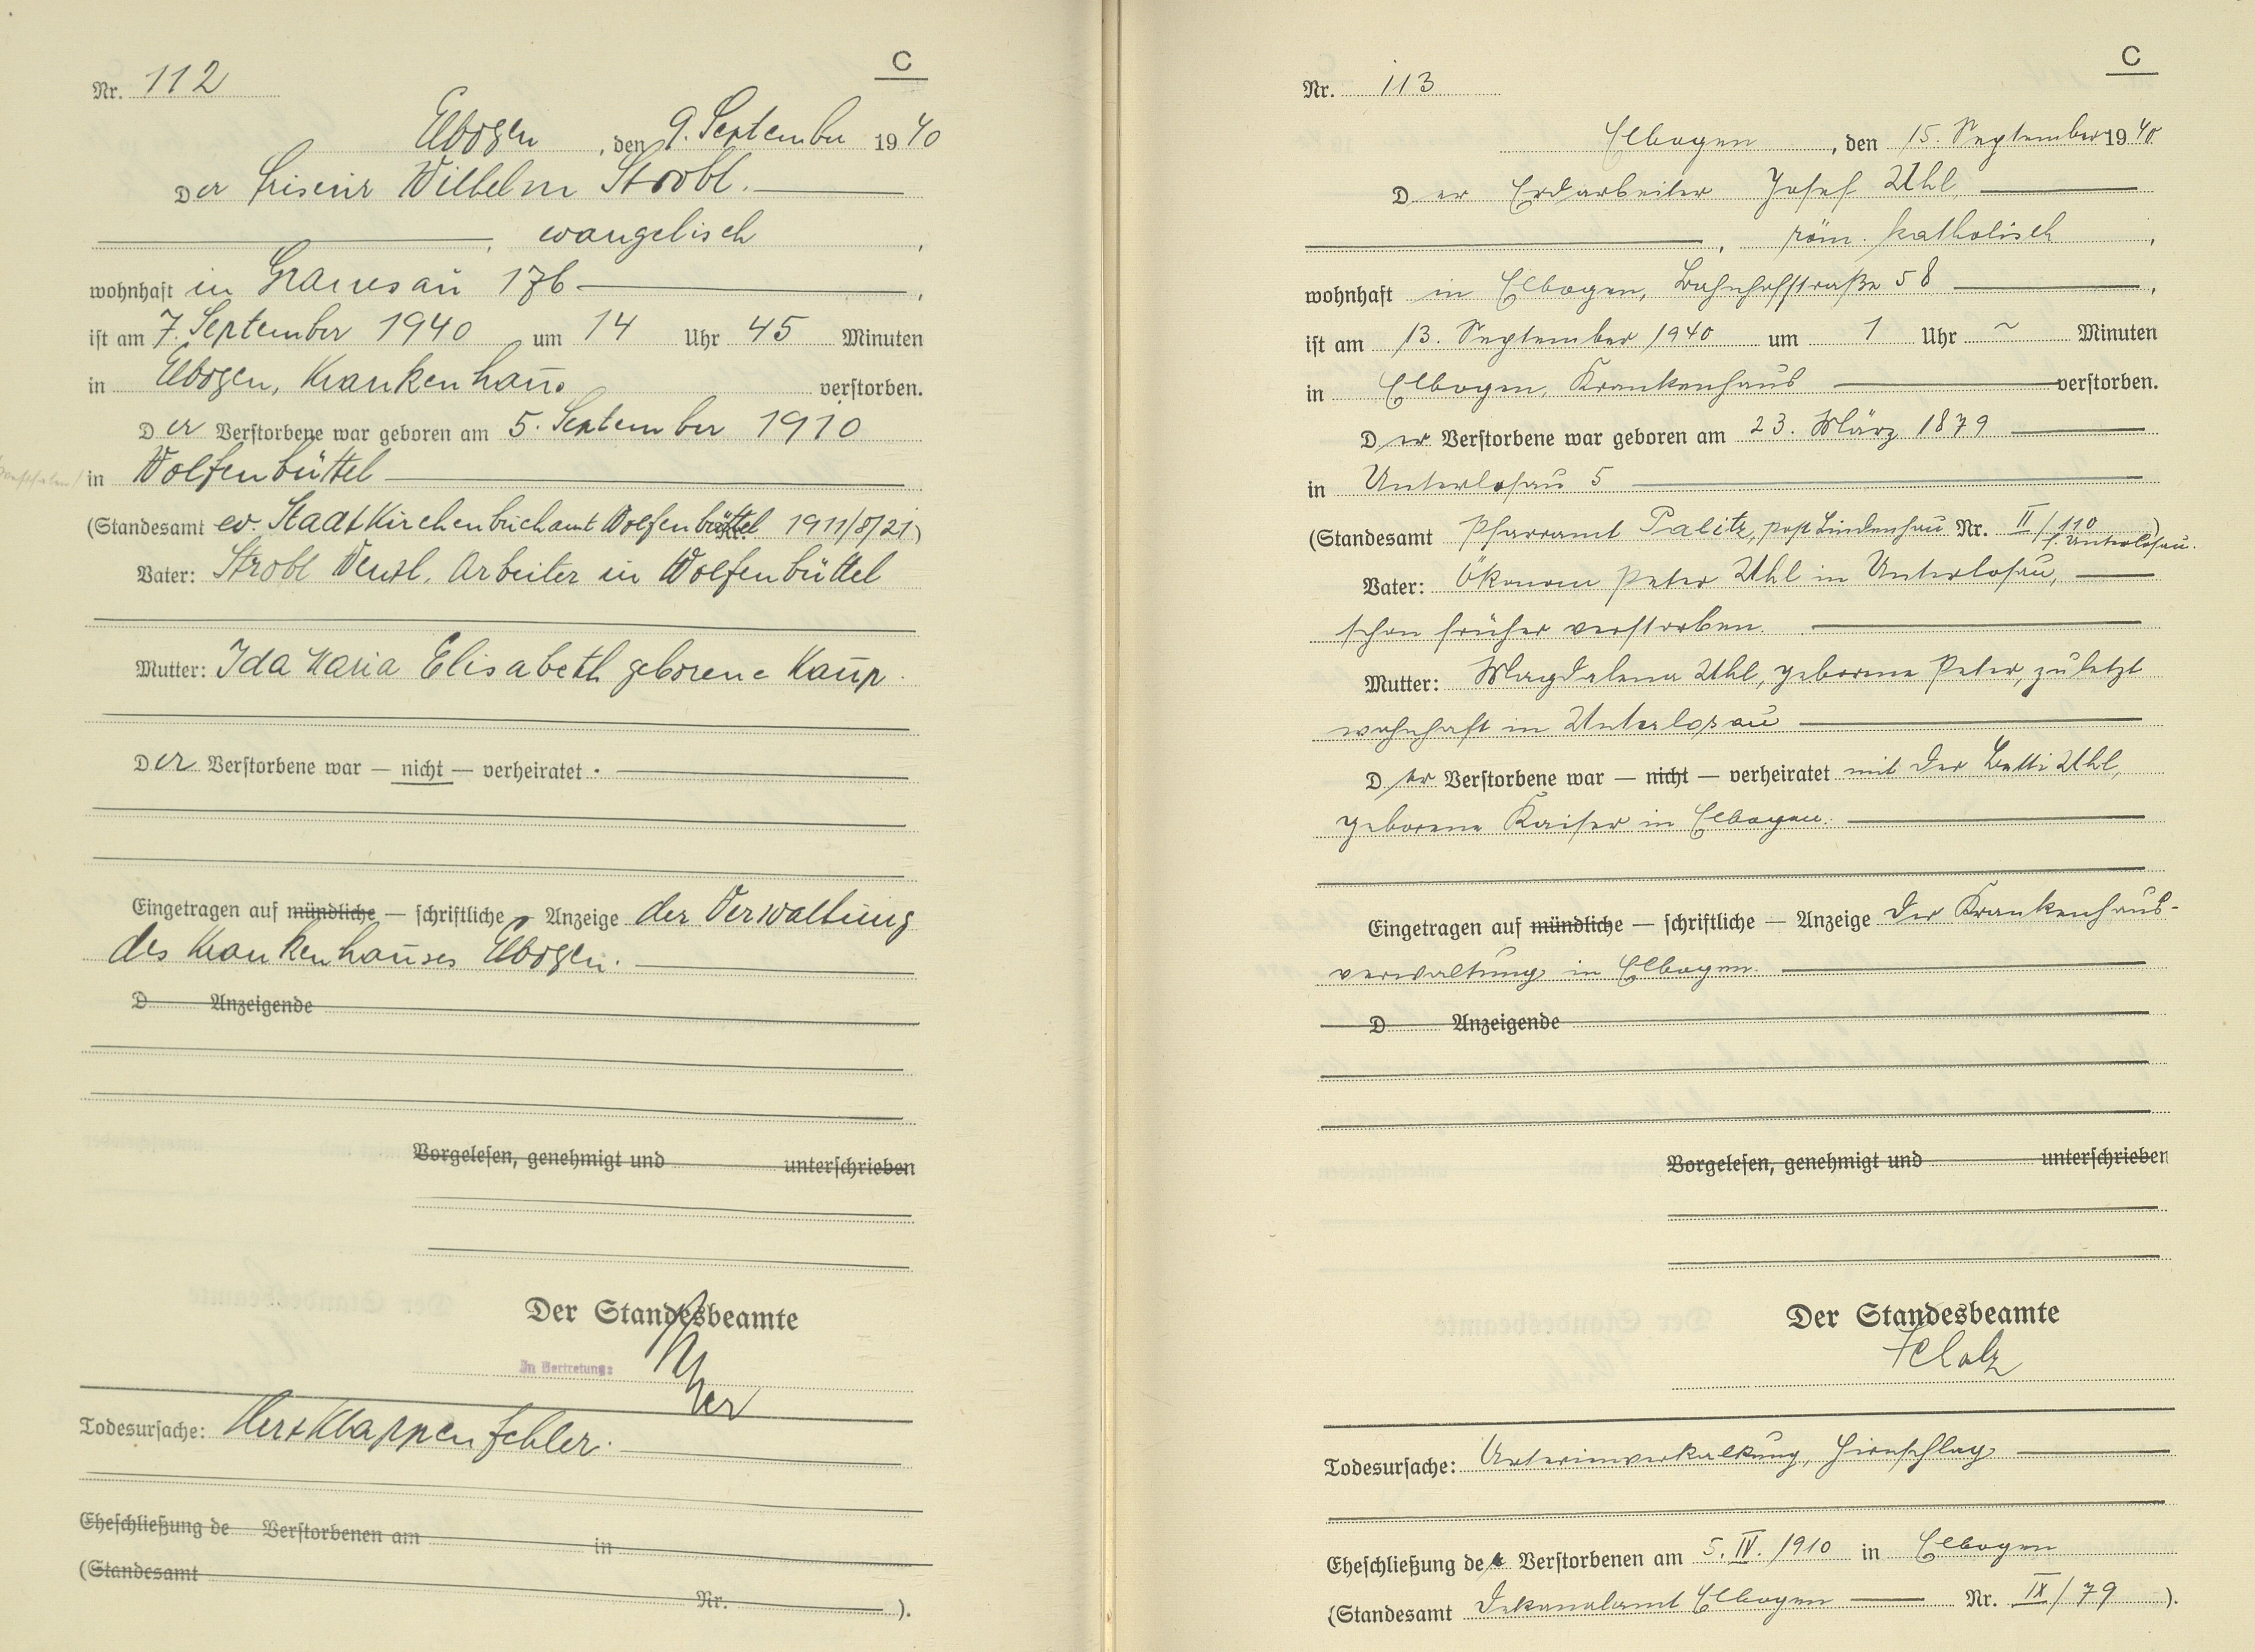 C
Nr. 112
Elbogen, den 9. September 1940
Der Friseur Wilhelm Strobl.
, evangelisch,
wohnhaft in Granesau 176,
ist am 7. September 1940 um 14 Uhr 45 Minuten
in Elbogen, Krankenhaus verstorben.
Der Verstorbene war geboren am 5. September 1910
in Wolfenbüttel
(Standesamt ev. Stadtkirchenbuchamt Wolfenbüttel 1911/8/21)
Vater: Strobl Wenzl, Arbeiter in Wolfenbüttel
Mutter: Ida Maria Elisabeth geborene Kaup.
Der Verstorbene war — nicht — verheiratet.
Eingetragen auf mündliche — schriftliche — Anzeige der Verwaltung
des Krankenhauses Elbogen.
D Anzeigende
Vorgelesen, genehmigt und unterschrieben
Der Standesbeamte
In Vertretung:
Todesursache: Herzklappenfehler.
Eheschließung de Verstorbenen am in
(Standesamt Nr. ).
C
Nr. 113
Elbogen, den 15. September 1940
Der Erdarbeiter Josef Uhl,
, röm. katholisch,
wohnhaft in Elbogen, Bahnhofstraße 58,
ist am 13. September 1940 um 1 Uhr ~ Minuten
in Elbogen, Krankenhaus verstorben.
Der Verstorbene war geboren am 23. März 1879
in Unterlosau 5
(Standesamt Pfarramt Palitz, post Lindenhau Nr. II/110)
f. Unterlosau.
Vater: Ökonom Peter Uhl in Unterlosau,
schon früher verstorben.
Mutter: Magdalena Uhl, geborene Peter, zuletzt
wohnhaft in Unterlosau
Der Verstorbene war — nicht — verheiratet mit der Betti Uhl,
geborene Kaiser in Elbogen.
Eingetragen auf mündliche — schriftliche — Anzeige der Krankenhaus-
verwaltung in Elbogen.
D Anzeigende
Vorgelesen, genehmigt und unterschrieben
Der Standesbeamte
Todesursache: Arterienverkalkung, Hirnschlag
Eheschließung des Verstorbenen am 5. IV. 1910 in Elbogen
(Standesamt Dekanalamt Elbogen Nr. IX/79).